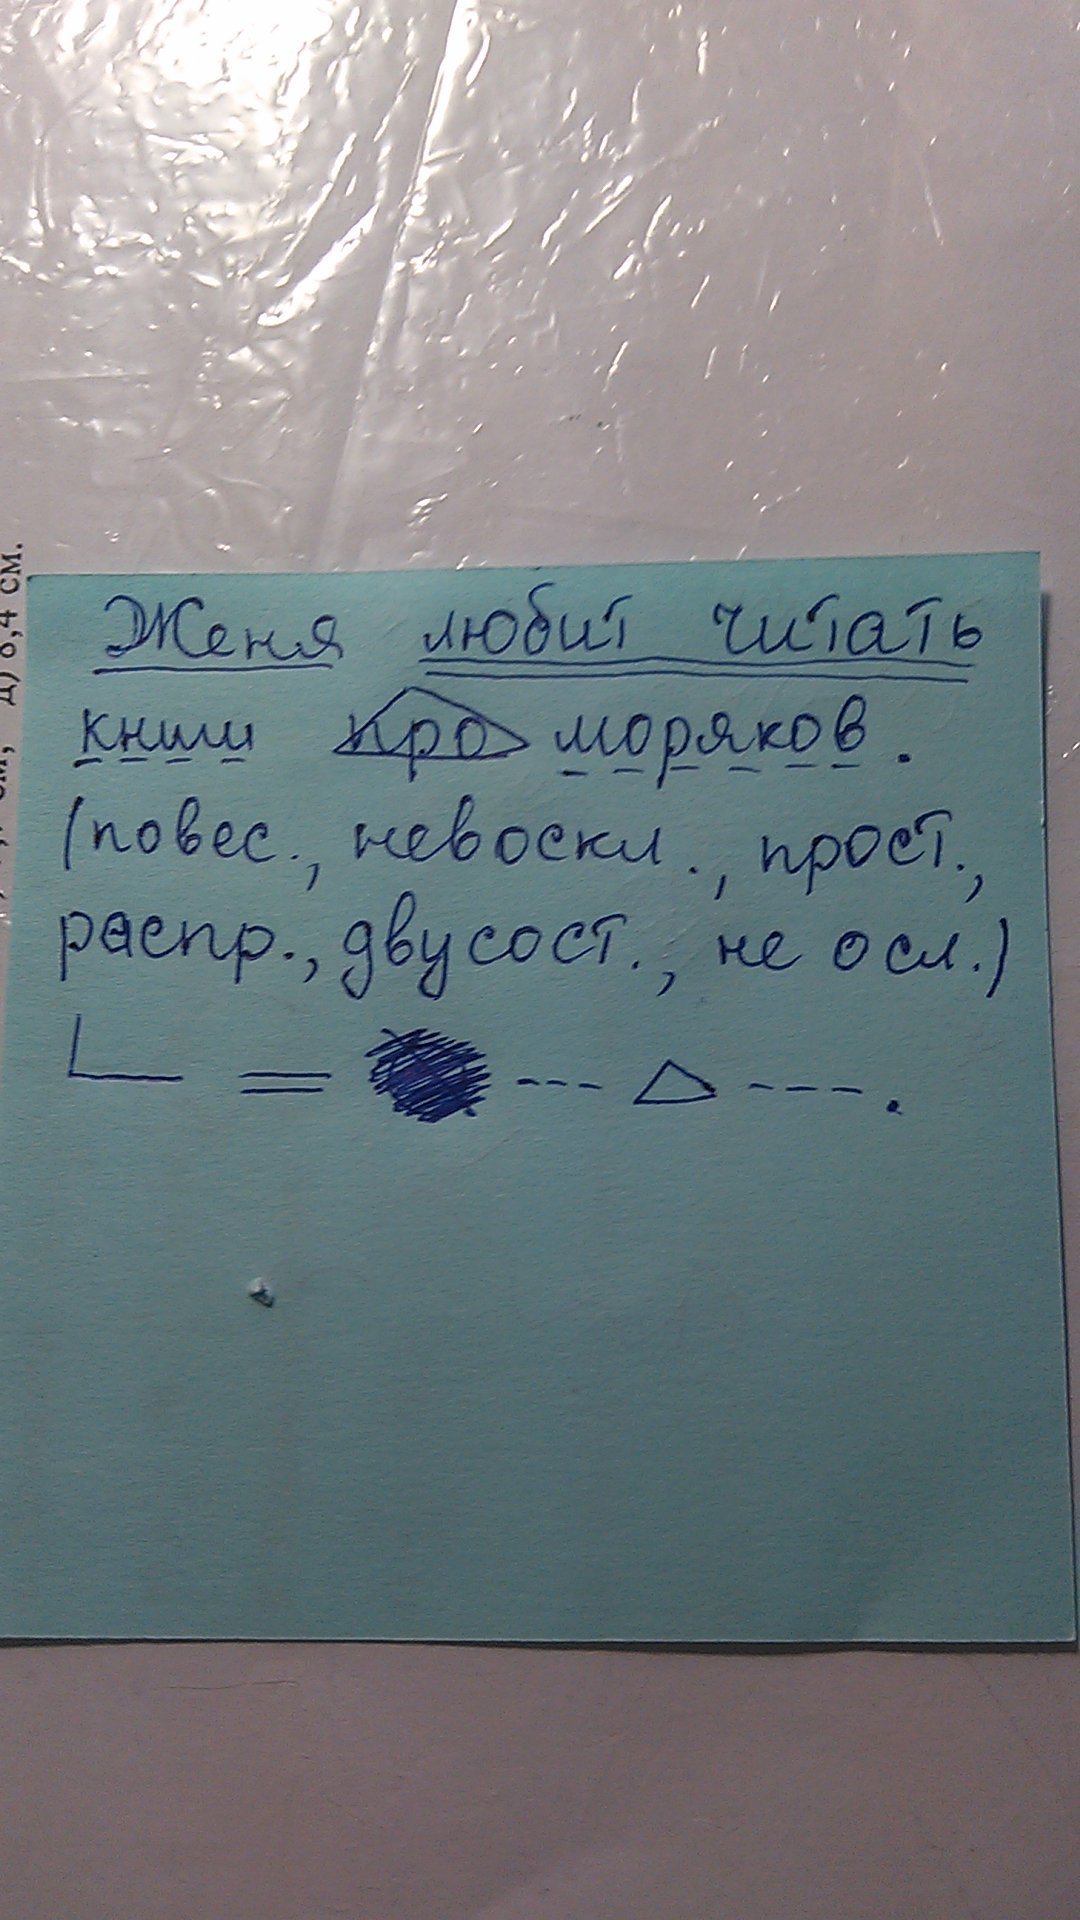 Женя любит читать
книги про моряков.
(повес., невоскл., прост.,
распр., двусост., не осл.)
д) 8,4 см.